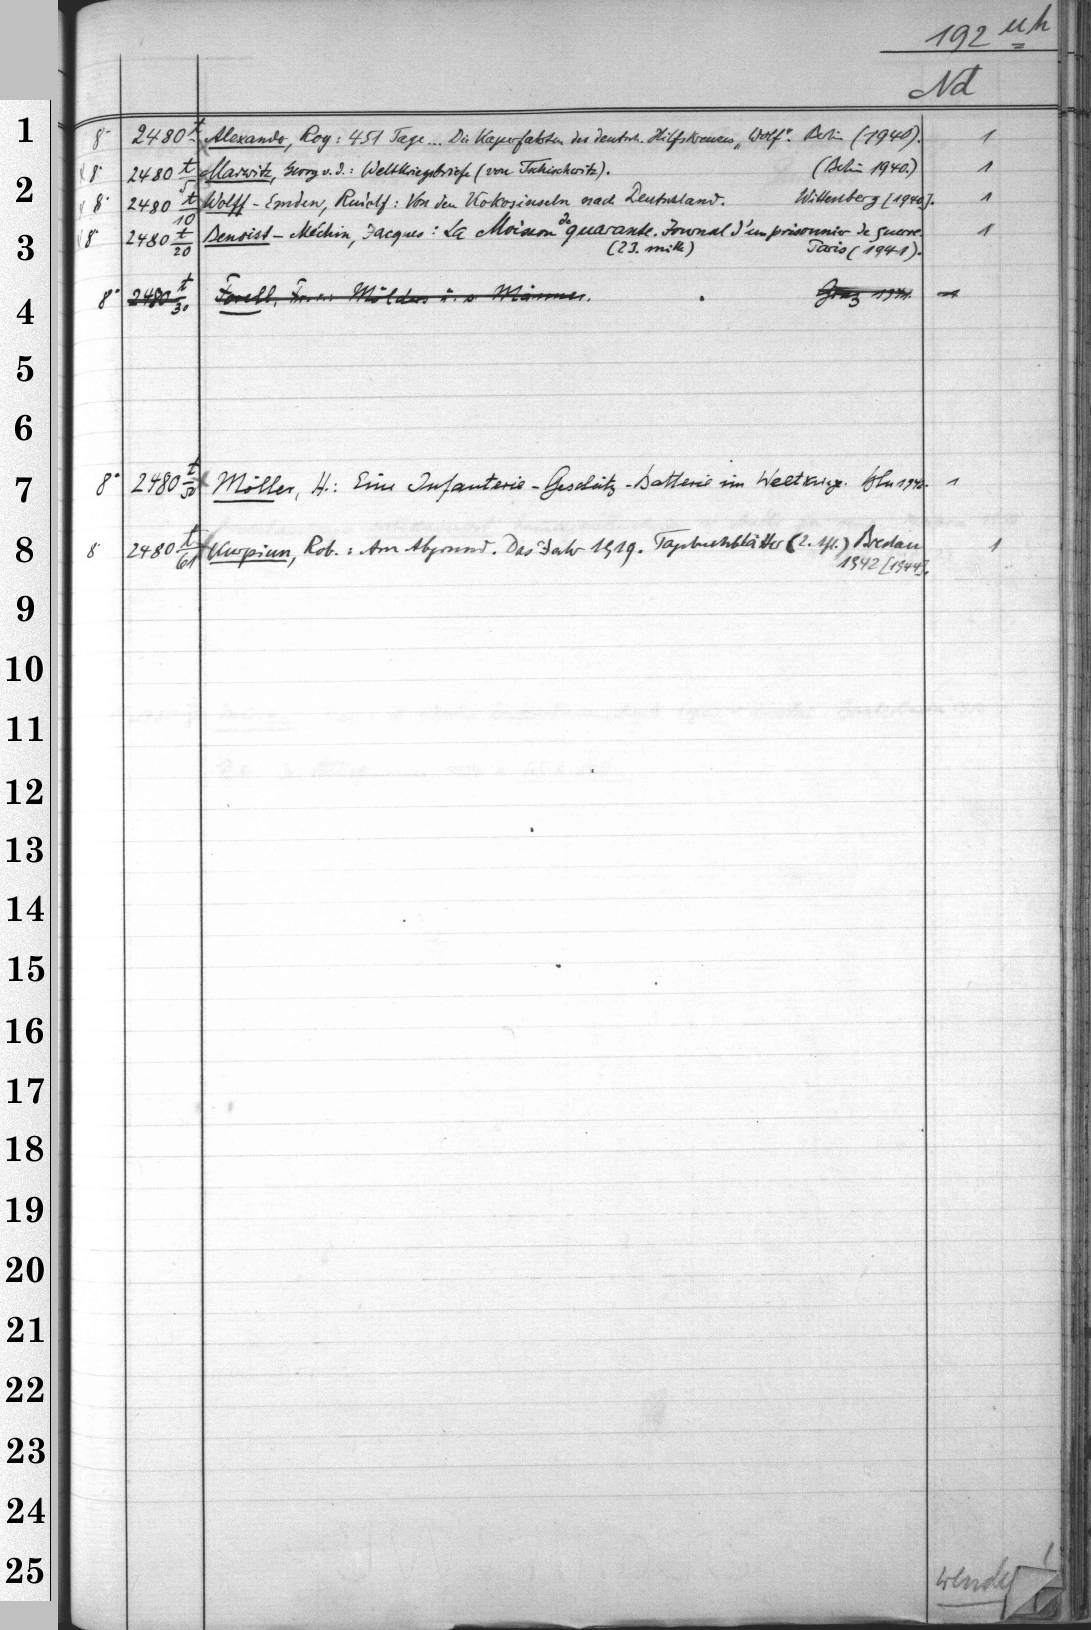 192
Nd
1 8° 2480 t Alexander, Roy: 451 Tage... Die Kaperfahrten des deutsch. Hilfskreuzers „Wolf". Berlin (1940). 1
8° 2480 t/5 Marwitz, Georg v. d.: Weltkriegsbriefe (von Tschischwitz). (Berlin 1940.) 1
2 8° 2480 t/10 Wolff-Emden, Rudolf: Von den Kokosinseln nach Deutschland. Wittenberg [1940]. 1
3 8° 2480 t/20 Benoist-Méchin, Jacques: La Moisson de quarante. Journal d'un prisonnier de guerre.
(23. mille) Paris (1941). 1
4 8° 2480 t/30 Forell, Mölders u. s. Männer. Graz 1941. 1
5
6
7 8° 2480 t/50 Möller, H.: Eine Infanterie-Geschütz-Batterie im Weltkriege. Bln 1942. 1
8 8° 2480 t/61 Kurpiun, Rob.: Am Abgrund. Das Jahr 1919. Tagebuchblätter (2. Afl.) Breslau
1942 [1944]. 1
9
10
11
12
13
14
15
16
17
18
19
20
21
22
23
24
25
wende!